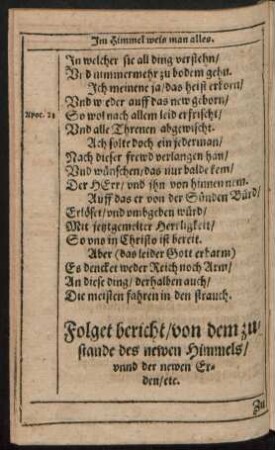 Im Himmel weis man alles.
In welcher sie all ding verstehn/
Vnd nimmermehr zu bodem gehn.
Ich meinene ja/das heist erkorn/
Vnd wieder auff das new geborn/
Apoc. 21
So wol nach allem leid erfrischt/
Vnd alle Threnen abgewischt.
Ach solte doch ein jederman/
Nach dieser frewd verlangen han/
Vnd wünschen/das nur balde kem/
Der HErr/vnd jhn von hinnen nem.
Auff das er von der Sünden Bürd/
Erlöset/vnd vmbgeben würd/
Mit jetztgemelter Herrligkeit/
So vns in Christo ist bereit.
Aber (das leider Gott erbarm)
Es dencket weder Reich noch Arm/
An diese ding/derhalben auch/
Die meisten fahren in den strauch.
Folget bericht/von dem zu/
stande des newen Himmels/
vnnd der newen Er-
den/etc.
Zu